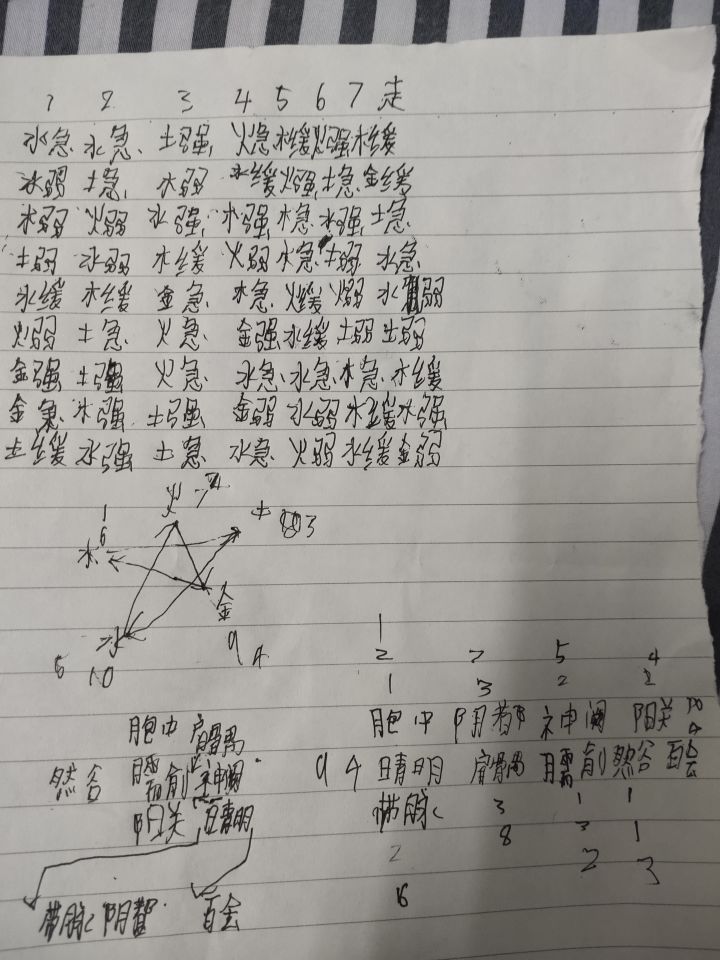 1 2 3 4 5 6 7 走
水急 水急 土强 火急 木缓 火强 木缓
木弱 土急 水弱 木缓 火强 土急 金缓
木弱 火弱 水强 水强 木急 水强 土急
土弱 水弱 木缓 火弱 火急 土弱 水急
水缓 木缓 金急 木急 火缓 火弱 水弱
火弱 土急 火急 金强 水缓 土弱 土弱
金强 土强 火急 水急 水急 木急 水缓
金急 水强 土强 金弱 水弱 木缓 水强
土缓 水强 土急 水急 火弱 水缓 金弱
火 7
1 土 3
6
木
金
水 9 4
5 10
1
2 7 5 4
1 3 2 2
胞中 肩髃 胞中 阴都 神阙 阳关
然谷 臑俞 神阙 9 4 睛明 肩髃 臑俞 然谷 百会
阳关 睛明 带脉 3 1 1
8 3 1
2 2 3
带脉 阴都 百会 6